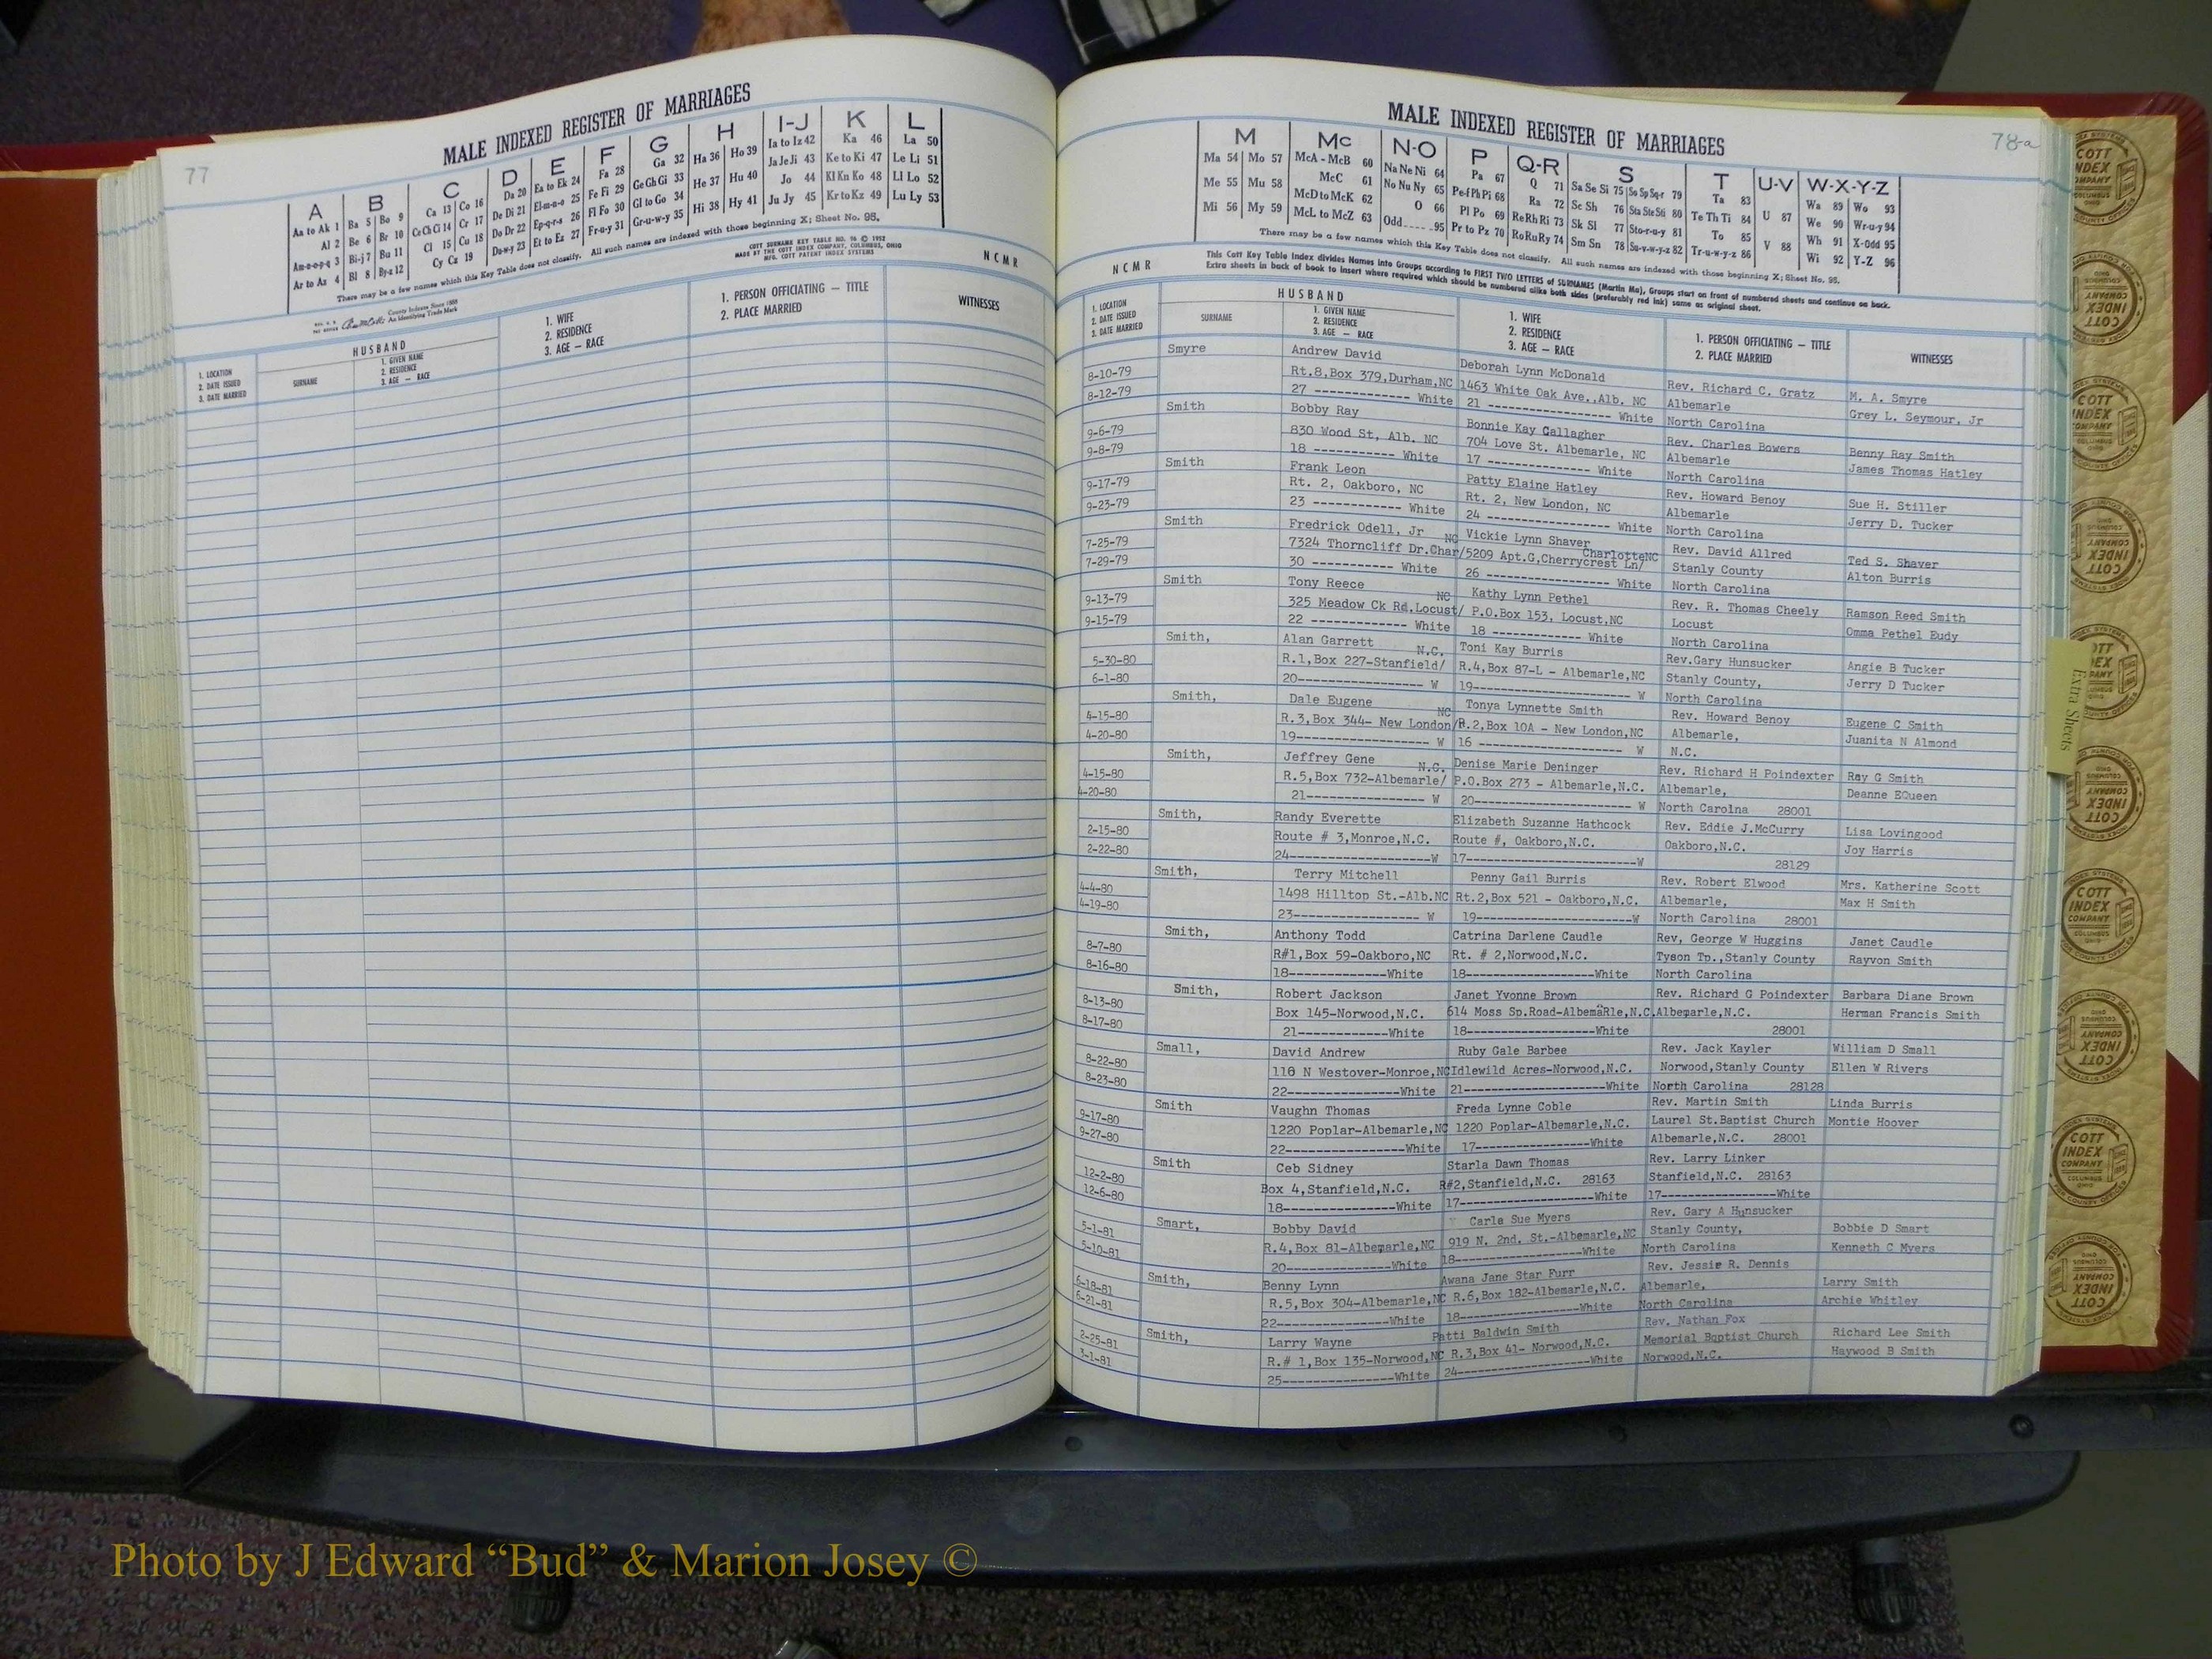 77
MALE INDEXED REGISTER OF MARRIAGES
A B C D E F G H I-J K L
Aa to Ak 1 Ba 5 Bo 9 Ca 13 Co 16 Da 20 Ea to Ek 24 Fa 28 Ga 32 Ha 36 Ho 39 Ia to Iz 42 Ka 46 La 50
Al 2 Be 6 Br 10 Ce Ch Ci 14 Cr 17 De Di 21 El-m-n-o 25 Fe Fi 29 Ge Gh Gi 33 He 37 Hu 40 Ja Je Ji 43 Ke to Ki 47 Le Li 51
Am-n-o-p-q 3 Bi-j 7 Bu 11 Cl 15 Cu 18 Do Dr 22 Ep-q-r-s 26 Fl Fo 30 Gl to Go 34 Hi 38 Hy 41 Jo 44 Kl Kn Ko 48 Ll Lo 52
Ar to Az 4 Bl 8 By-z 12 Cy Cz 19 Du-w-y 23 Et to Ez 27 Fr-u-y 31 Gr-u-w-y 35 Ju Jy 45 Kr to Kz 49 Lu Ly 53
There may be a few names which this Key Table does not classify. All such names are indexed with those beginning X; Sheet No. 95.
COTT SURNAME KEY TABLE NO. 96 © 1952
MADE BY THE COTT INDEX COMPANY, COLUMBUS, OHIO
MFG. COTT PATENT INDEX SYSTEMS
County Indexes Since 1888
An Identifying Trade Mark
N C M R
HUSBAND
1. LOCATION
2. DATE ISSUED
3. DATE MARRIED
SURNAME
1. GIVEN NAME
2. RESIDENCE
3. AGE — RACE
1. WIFE
2. RESIDENCE
3. AGE — RACE
1. PERSON OFFICIATING — TITLE
2. PLACE MARRIED
WITNESSES
78-a
MALE INDEXED REGISTER OF MARRIAGES
M Mc N-O P Q-R S T U-V W-X-Y-Z
Ma 54 Mo 57 McA - McB 60 Na Ne Ni 64 Pa 67 Q 71 Sa Se Si 75 So Sp Sq-r 79 Ta 83 U 87 Wa 89 Wo 93
Me 55 Mu 58 McC 61 No Nu Ny 65 Pe-f Ph Pi 68 Ra 72 Sc Sh 76 Sta Ste Sti 80 Te Th Ti 84 V 88 We 90 Wr-u-y 94
Mi 56 My 59 McD to McK 62 O 66 Pl Po 69 Re Rh Ri 73 Sk Sl 77 Sto-r-u-y 81 To 85 Wh 91 X-Odd 95
McL to McZ 63 Odd 95 Pr to Pz 70 Ro Ru Ry 74 Sm Sn 78 Su-v-w-y-z 82 Tr-u-w-y-z 86 Wi 92 Y-Z 96
There may be a few names which this Key Table does not classify. All such names are indexed with those beginning X; Sheet No. 95.
This Cott Key Table Index divides Names into Groups according to FIRST TWO LETTERS of SURNAMES (Martin Ma), Groups start on front of numbered sheets and continue on back.
Extra sheets in back of book to insert where required which should be numbered alike both sides (preferably red ink) same as original sheet.
N C M R
HUSBAND
1. LOCATION
2. DATE ISSUED
3. DATE MARRIED
SURNAME
1. GIVEN NAME
2. RESIDENCE
3. AGE — RACE
1. WIFE
2. RESIDENCE
3. AGE — RACE
1. PERSON OFFICIATING — TITLE
2. PLACE MARRIED
WITNESSES
Smyre Andrew David Deborah Lynn McDonald Rev. Richard C. Gratz M. A. Smyre
8-10-79 Rt.8,Box 379,Durham,NC 1463 White Oak Ave.,Alb. NC Albemarle Grey L. Seymour, Jr
8-12-79 27 ------------ White 21 ---------------- White North Carolina
Smith Bobby Ray Bonnie Kay Gallagher Rev. Charles Bowers Benny Ray Smith
9-6-79 830 Wood St, Alb. NC 704 Love St. Albemarle, NC Albemarle James Thomas Hatley
9-8-79 18 ----------- White 17 -------------- White North Carolina
Smith Frank Leon Patty Elaine Hatley Rev. Howard Benoy Sue H. Stiller
9-17-79 Rt. 2, Oakboro, NC Rt. 2, New London, NC Albemarle Jerry D. Tucker
9-23-79 23 ------------ White 24 ---------------- White North Carolina
Smith Fredrick Odell, Jr Vickie Lynn Shaver Rev. David Allred Ted S. Shaver
7-25-79 7324 Thorncliff Dr.Char/NC 5209 Apt.G,Cherrycrest Ln/CharlotteNC Stanly County Alton Burris
7-29-79 30 ----------- White 26 ---------------- White North Carolina
Smith Tony Reece Kathy Lynn Pethel Rev. R. Thomas Cheely Ramson Reed Smith
9-13-79 325 Meadow Ck Rd,Locust/NC P.O.Box 153, Locust,NC Locust Omma Pethel Eudy
9-15-79 22 ------------- White 18 ------------- White North Carolina
Smith, Alan Garrett Toni Kay Burris Rev.Gary Hunsucker Angie B Tucker
5-30-80 R.1,Box 227-Stanfield/N.C. R.4,Box 87-L - Albemarle,NC Stanly County, Jerry D Tucker
6-1-80 20------------------ W 19-------------------- W North Carolina
Smith, Dale Eugene Tonya Lynnette Smith Rev. Howard Benoy Eugene C Smith
4-15-80 R.3,Box 344- New London/NC R.2,Box 10A - New London,NC Albemarle, Juanita N Almond
4-20-80 19----------------- W 16 ------------------ W N.C.
Smith, Jeffrey Gene Denise Marie Deninger Rev. Richard H Poindexter Ray G Smith
4-15-80 R.5,Box 732-Albemarle/N.C. P.O.Box 273 - Albemarle,N.C. Albemarle, Deanne EQueen
4-20-80 21---------------- W 20-------------------- W North Carolna 28001
Smith, Randy Everette Elizabeth Suzanne Hathcock Rev. Eddie J.McCurry Lisa Lovingood
2-15-80 Route # 3,Monroe,N.C. Route #, Oakboro,N.C. Oakboro,N.C. Joy Harris
2-22-80 24-------------------W 17------------------------W 28129
Smith, Terry Mitchell Penny Gail Burris Rev. Robert Elwood Mrs. Katherine Scott
4-4-80 1498 Hilltop St.-Alb.NC Rt.2,Box 521 - Oakboro,N.C. Albemarle, Max H Smith
4-19-80 23---------------- W 19----------------------W North Carolina 28001
Smith, Anthony Todd Catrina Darlene Caudle Rev, George W Huggins Janet Caudle
8-7-80 R#1,Box 59-Oakboro,NC Rt. # 2,Norwood,N.C. Tyson Tp.,Stanly County Rayvon Smith
8-16-80 18-------------White 18------------------White North Carolina
Smith, Robert Jackson Janet Yvonne Brown Rev. Richard G Poindexter Barbara Diane Brown
8-13-80 Box 145-Norwood,N.C. 614 Moss Sp.Road-AlbemaRle,N.C. Albemarle,N.C. Herman Francis Smith
8-17-80 21------------White 18------------------White 28001
Small, David Andrew Ruby Gale Barbee Rev. Jack Kayler William D Small
8-22-80 116 N Westover-Monroe,NC Idlewild Acres-Norwood,N.C. Norwood,Stanly County Ellen W Rivers
8-23-80 22----------------White 21------------------White North Carolina 28128
Smith Vaughn Thomas Freda Lynne Coble Rev. Martin Smith Linda Burris
9-17-80 1220 Poplar-Albemarle,NC 1220 Poplar-Albemarle,N.C. Laurel St.Baptist Church Montie Hoover
9-27-80 22----------------White 17----------------White Albemarle,N.C. 28001
Smith Ceb Sidney Starla Dawn Thomas Rev. Larry Linker
12-2-80 Box 4,Stanfield,N.C. R#2,Stanfield,N.C. 28163 Stanfield,N.C. 28163
12-6-80 18----------------White 17------------------White 17----------------White
Smart, Bobby David Carla Sue Myers Rev. Gary A Hunsucker
5-1-81 R.4,Box 81-Albemarle,NC 919 N. 2nd. St.-Albemarle,NC Stanly County, Bobbie D Smart
5-10-81 20---------------White 18------------------White North Carolina Kenneth C Myers
Smith, Benny Lynn Awana Jane Star Furr Rev. Jessie R. Dennis
6-18-81 R.5,Box 304-Albemarle,NC R.6,Box 182-Albemarle,N.C. Albemarle, Larry Smith
6-21-81 22----------------White 18-----------------White North Carolina Archie Whitley
Smith, Larry Wayne Patti Baldwin Smith Rev. Nathan Fox
2-25-81 R.# 1,Box 135-Norwood,NC R.3,Box 41- Norwood,N.C. Memorial Baptist Church Richard Lee Smith
3-1-81 25----------------White 24------------------White Norwood,N.C. Haywood B Smith
Extra Sheets
COTT INDEX COMPANY COLUMBUS OHIO
Photo by J Edward “Bud” & Marion Josey ©